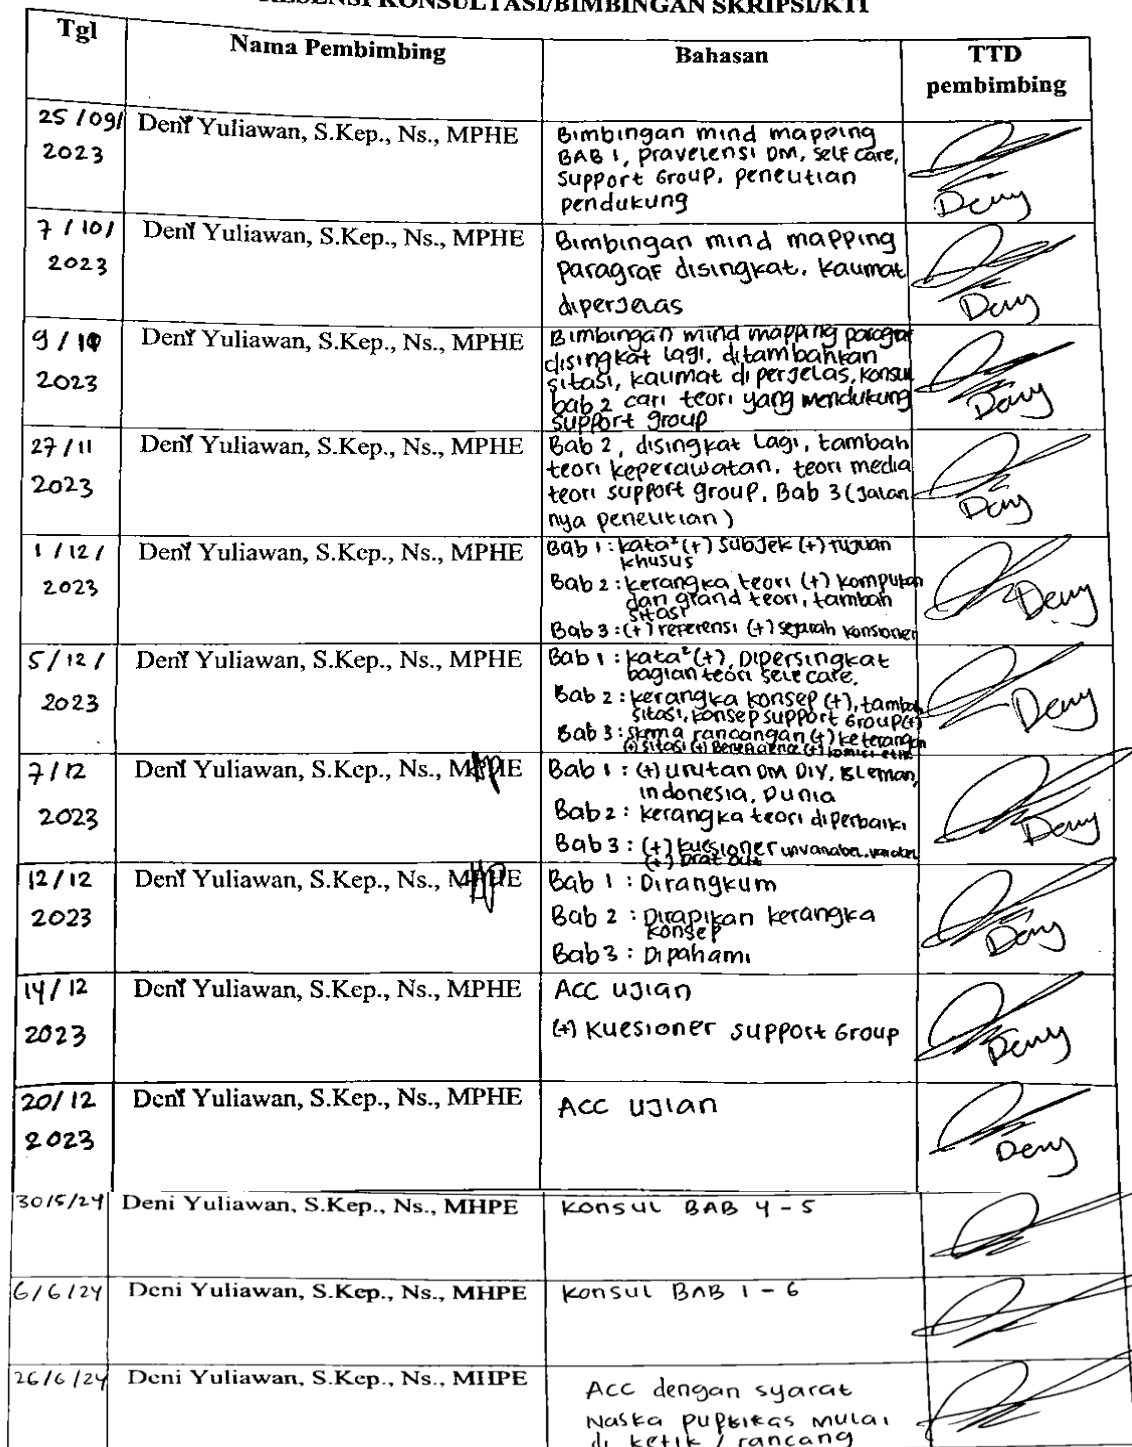 PRESENSI KONSULTASI/BIMBINGAN SKRIPSI/KTI
Tgl
Nama Pembimbing
Bahasan
TTD
pembimbing
25/09/
2023
Deni Yuliawan, S.Kep., Ns., MPHE
Bimbingan mind mapping
BAB 1, pravelensi DM, self care,
Support Group, penelitian
pendukung
Deny
7/10/
2023
Deni Yuliawan, S.Kep., Ns., MPHE
Bimbingan mind mapping
paragraf disingkat, kalimat
diperjelas
Deny
9/10
2023
Deni Yuliawan, S.Kep., Ns., MPHE
Bimbingan mind mapping paragraf
disingkat lagi, ditambahkan
sitasi, kalimat diperjelas, konsul
bab 2 cari teori yang mendukung
support group
Deny
27/11
2023
Deni Yuliawan, S.Kep., Ns., MPHE
Bab 2, disingkat lagi, tambah
teori keperawatan, teori media
teori support group, Bab 3 (Jalan
nya penelitian)
Deny
1/12/
2023
Deni Yuliawan, S.Kep., Ns., MPHE
Bab 1 : kata² (+) subjek (+) tujuan
khusus
Bab 2 : kerangka teori (+)
dan grand teori, tambah
sitasi
Bab 3 : (+) referensi (+) sejarah
Deny
5/12/
2023
Deni Yuliawan, S.Kep., Ns., MPHE
Bab 1 : kata² (+), Dipersingkat
bagian teori self care,
Bab 2 : kerangka konsep (+), tambah
sitasi, konsep support Group (+)
Bab 3 : skema rancangan (+) keterangan
(+) sitasi (+) (+) komisi etik
Deny
7/12
2023
Deni Yuliawan, S.Kep., Ns., MPHE
Bab 1 : (+) urutan DM DIY, Sleman,
Indonesia, Dunia
Bab 2 : kerangka teori diperbaiki
Bab 3 : (+) kuesioner
(+)
Deny
12/12
2023
Deni Yuliawan, S.Kep., Ns., MPHE
Bab 1 : Dirangkum
Bab 2 : Dirapikan kerangka
konsep
Bab 3 : Dipahami
Deny
14/12
2023
Deni Yuliawan, S.Kep., Ns., MPHE
ACC ujian
(+) Kuesioner Support Group
Deny
20/12
2023
Deni Yuliawan, S.Kep., Ns., MPHE
ACC ujian
Deny
30/5/24
Deni Yuliawan, S.Kep., Ns., MHPE
Konsul BAB 4 - 5
6/6/24
Deni Yuliawan, S.Kep., Ns., MHPE
Konsul BAB 1 - 6
26/6/24
Deni Yuliawan, S.Kep., Ns., MHPE
Acc dengan syarat
Naska mulai
di ketik / rancang